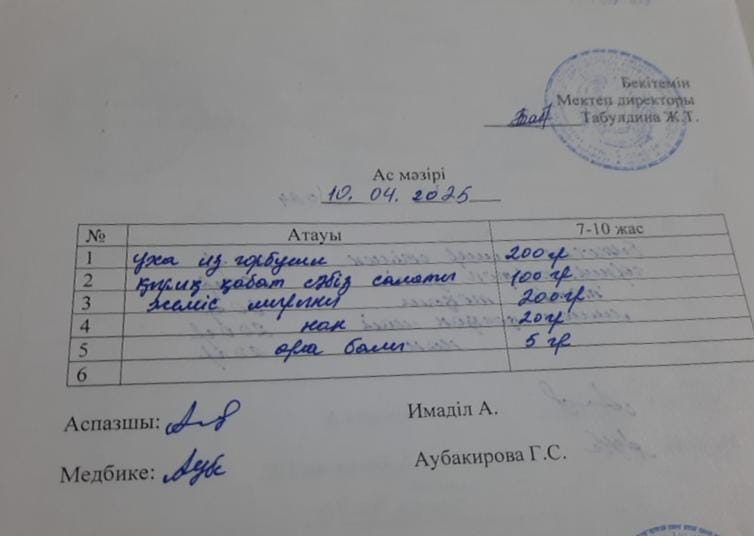 Бекітемін
Мектеп директоры
Табулдина Ж.Т.
Ас мәзірі
10. 04. 2025
№ Атауы 7-10 жас
1 уха из горбуши 200гр
2 қырық қабат сәбіз салаты 100 гр
3 жеміс 200гр
4 нан 20гр
5 ара балы 5 гр
6
Аспазшы: Имаділ А.
Медбике: Аубакирова Г.С.